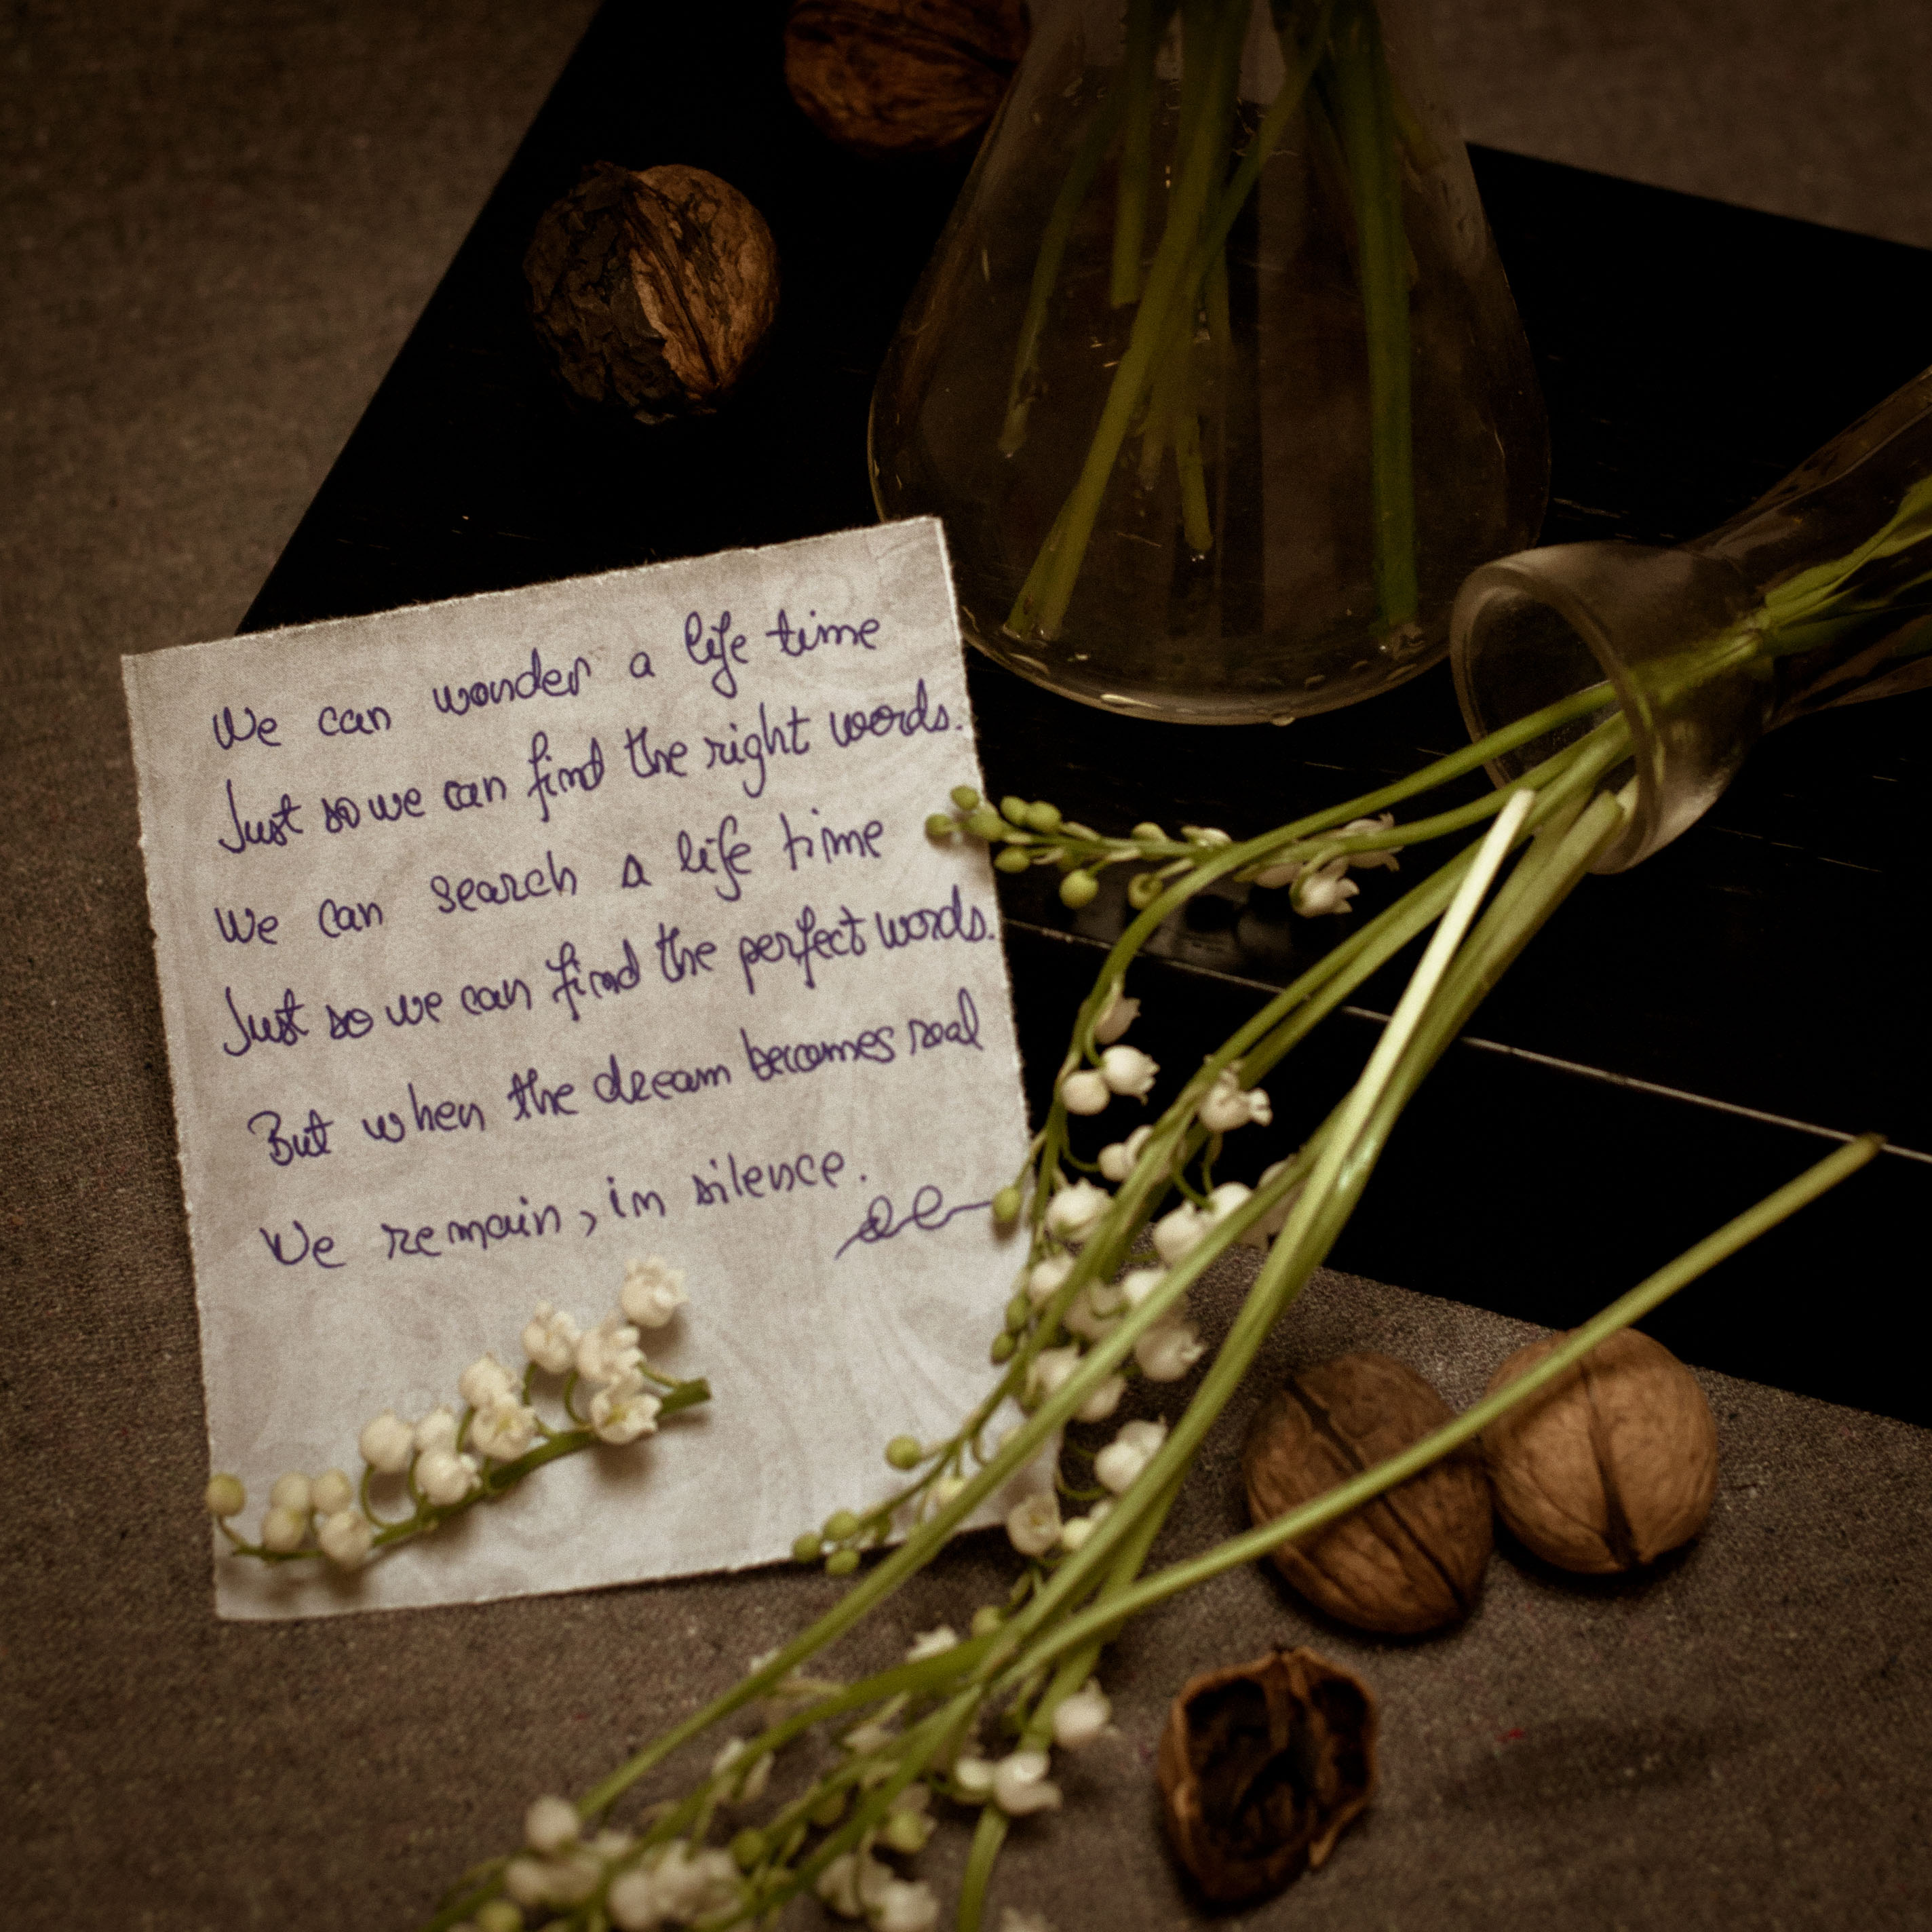 We can wonder a life time
Just so we can find the right words.
We can search a life time
Just so we can find the perfect words.
But when the dream becomes real
We remain, in silence.